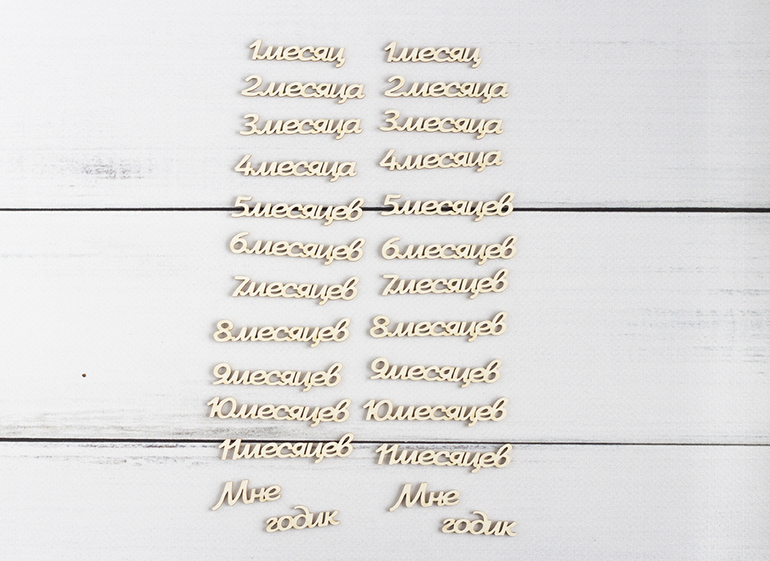 1месяц 1месяц
2месяца 2месяца
3месяца 3месяца
4месяца 4месяца
5месяцев 5месяцев
6месяцев 6месяцев
7месяцев 7месяцев
8месяцев 8месяцев
9месяцев 9месяцев
10месяцев 10месяцев
11месяцев 11месяцев
Мне Мне
годик годик